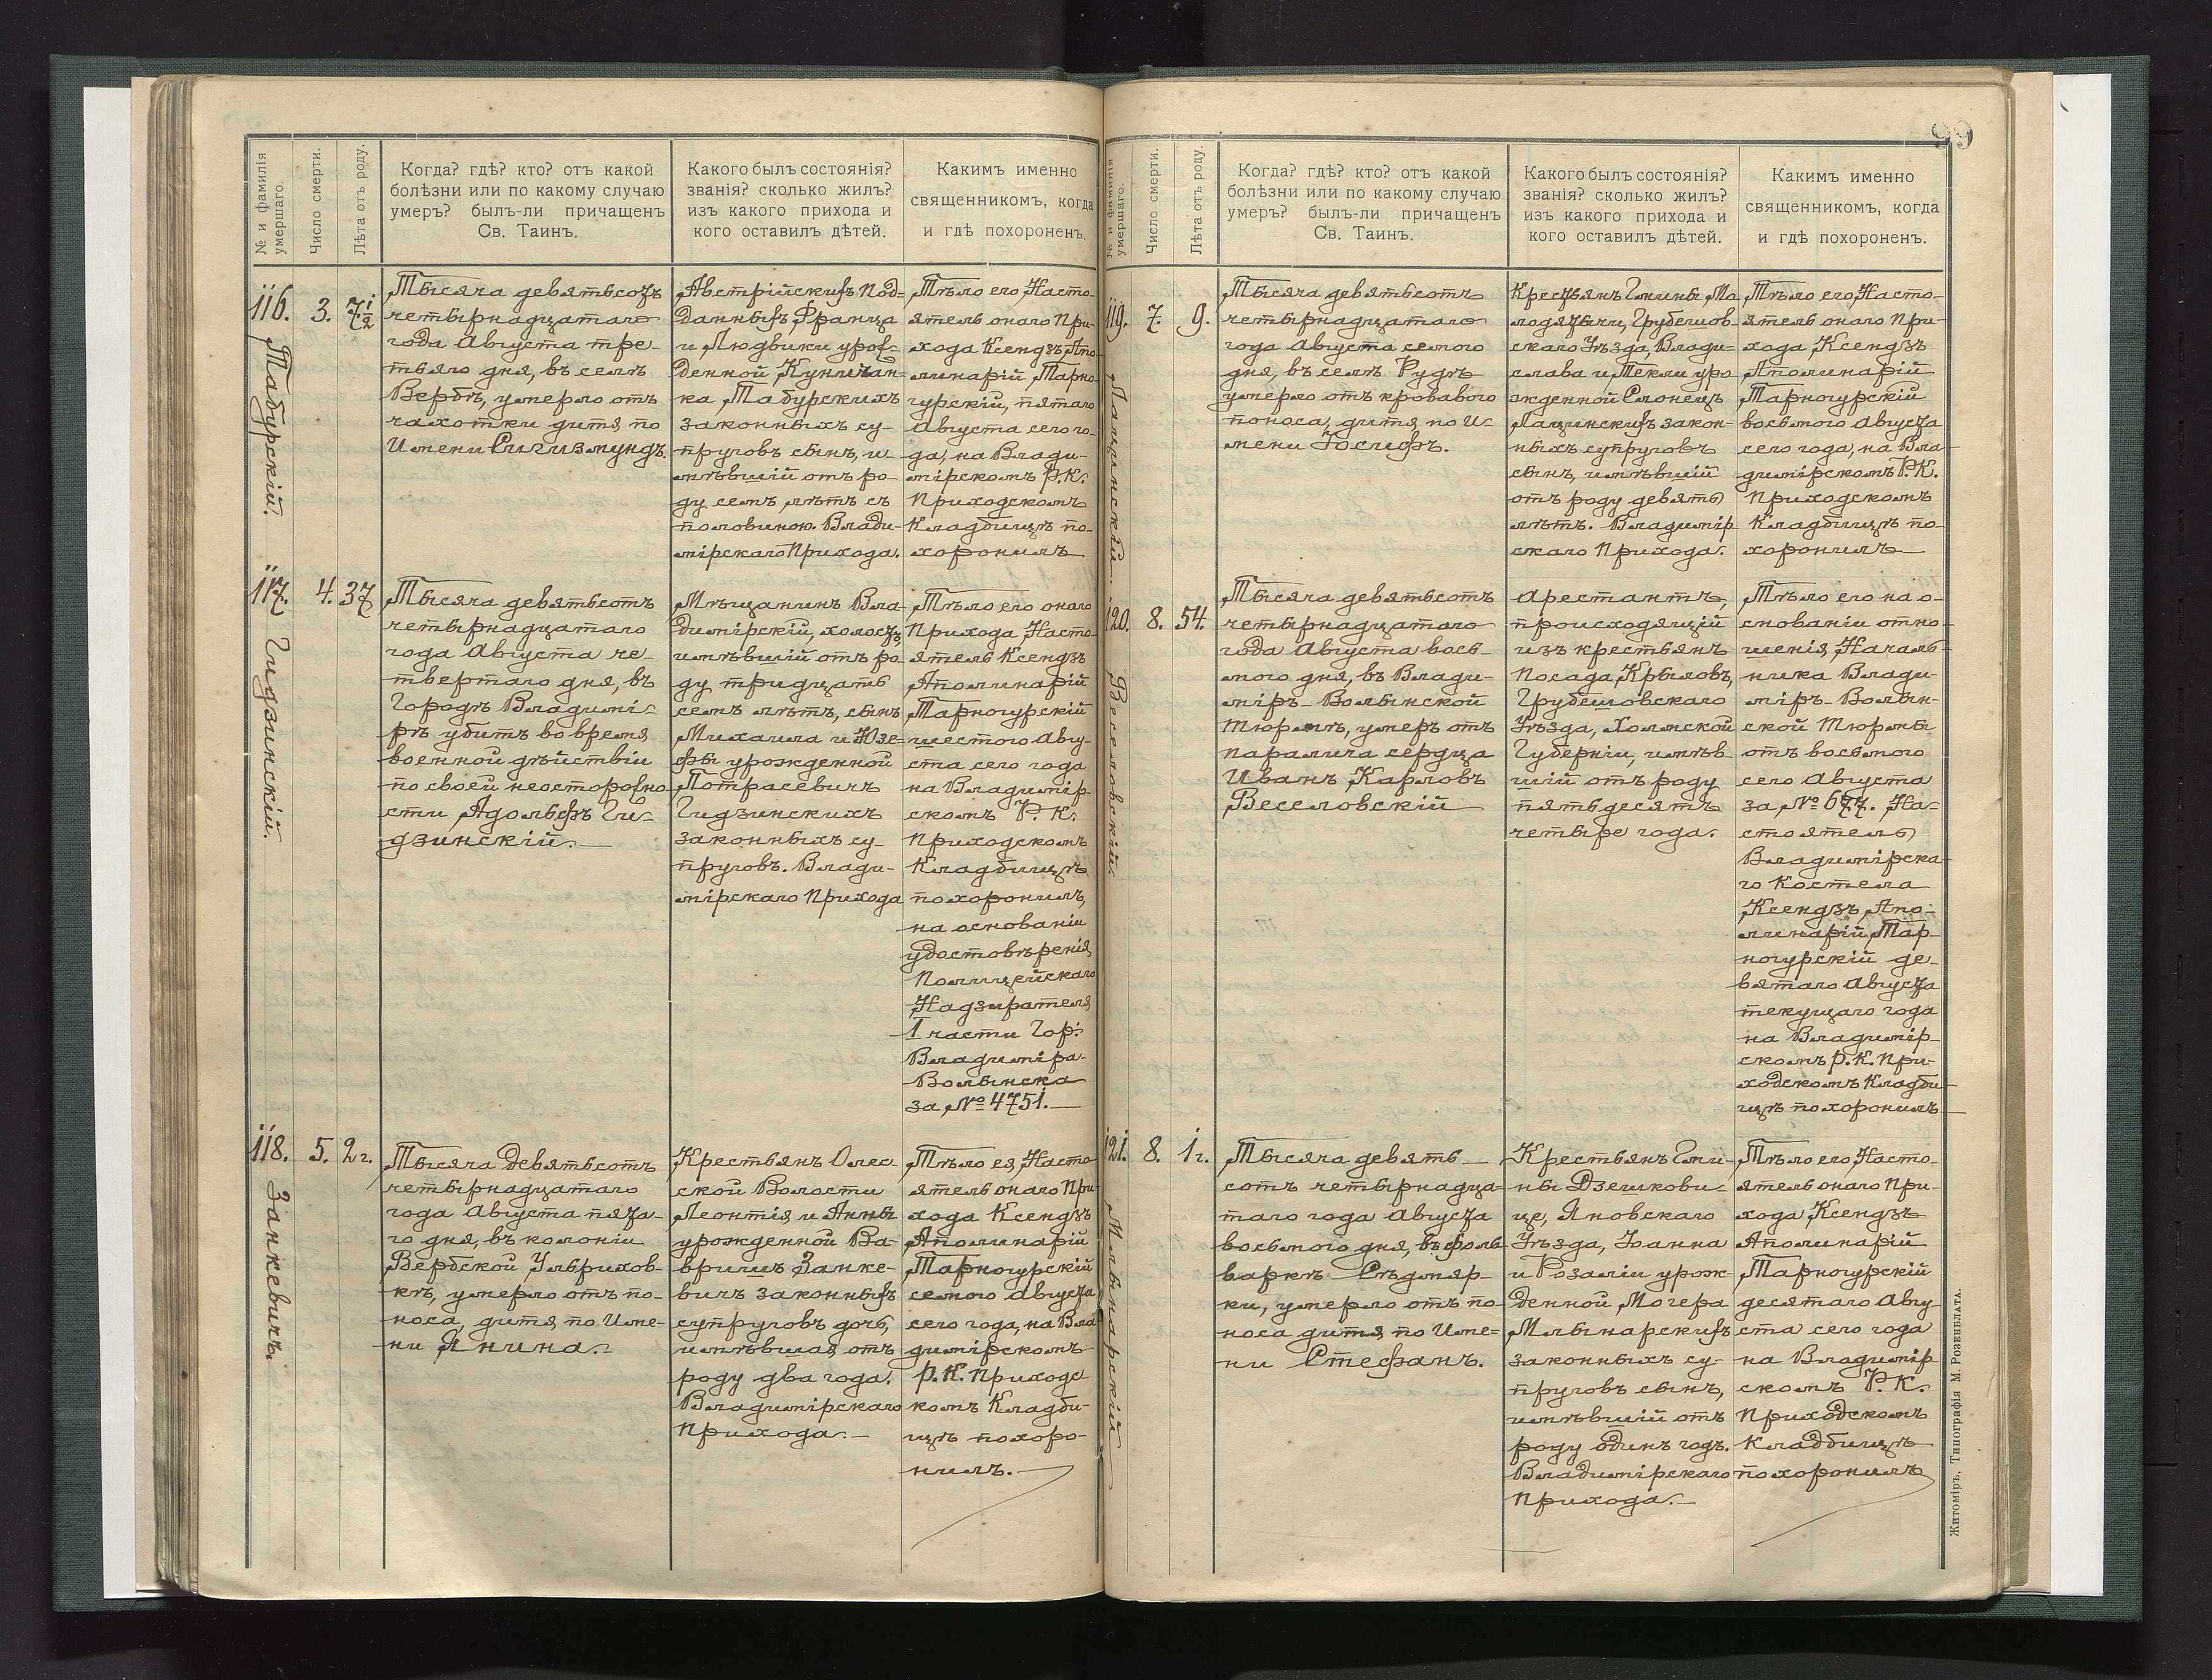 № и фамилія умершаго.
Число смерти.
Лѣта отъ роду.
Когда? гдѣ? кто? отъ какой
болѣзни или по какому случаю
умеръ? былъ-ли причащенъ
Св. Таинъ.
Какого былъ состоянія?
званія? сколько жилъ?
изъ какого прихода и
кого оставилъ дѣтей.
Какимъ именно
священникомъ, когда
и гдѣ похороненъ.
116.
Табурскій.
3.
7½
Тысяча девятьсотъ
четырнадцатаго
года Августа тре-
тьяго дня, въ селѣ
Вербѣ, умерло отъ
чахотки дитя по
Имени Сигизмундъ.
Австрійскихъ Под-
данныхъ Франца
и Людвики урож-
денной
ка Табурскихъ
законныхъ су-
пруговъ сынъ, и-
мѣвшій отъ ро-
ду семъ лѣтъ съ
половиною. Влади-
мірскаго Прихода.
Тѣло его Насто-
ятель онаго При-
хода Ксендзъ Апо-
линарій Тарно-
гурскій, пятаго
Августа сего го-
да, на Влади-
мірскомъ Р.К.
Приходскомъ
Кладбищѣ по-
хоронилъ
117.
Гидзинскій.
4.
37
Тысяча девятьсотъ
четырнадцатаго
года Августа че-
твертаго дня, въ
Городѣ Владимі-
рѣ убитъ во время
военной дѣйствіи
по своей неосторожно
сти Адольфъ Ги-
дзинскій.
Мѣщанинъ Вла-
димірскій, холостъ,
имѣвшій отъ ро-
ду тридцать
семъ лѣтъ, сынъ
Михаила и Юзе-
фы урожденной
Потрасевичъ
Гидзинскихъ
законныхъ су-
пруговъ. Влади-
мірскаго Прихода
Тѣло его онаго
Прихода Насто-
ятель Ксендзъ
Аполинарій
Тарногурскій
шестого Авгу-
ста сего года
на Владимір-
скомъ Р. К.
Приходскомъ
Кладбищѣ
похоронилъ,
на основаніи
удостовѣренія
Полицейскаго
Надзирателя
I части Гор.
Владиміра-
Волынска
за № 4751.
118.
Занкевичъ.
5.
2 г.
Тысяча девятьсотъ
четырнадцатаго
года Августа пята-
го дня, въ колоніи
Вербской Ульрихов-
кѣ, умерло отъ по-
носа, дитя по Име-
ни Янина.
Крестьянъ Олес-
ской Волости
Леонтія и Анны
урожденной Ва-
вришъ Занке-
вичъ законныхъ
супруговъ дочь,
имѣвшая отъ
роду два года.
Владимірскаго
Прихода.
Тѣло ея Насто-
ятель онаго При-
хода Ксендзъ
Аполинарій
Тарногурскій
семого Августа
сего года, на Вла
димірскомъ
Р.К. Приходс
комъ Кладби-
щѣ похоро-
нилъ.
99
№ и фамилія умершаго.
Число смерти.
Лѣта отъ роду.
Когда? гдѣ? кто? отъ какой
болѣзни или по какому случаю
умеръ? былъ-ли причащенъ
Св. Таинъ.
Какого былъ состоянія?
званія? сколько жилъ?
изъ какого прихода и
кого оставилъ дѣтей.
Какимъ именно
священникомъ, когда
и гдѣ похороненъ.
119.
Лащинскій.
7.
9.
Тысяча девятьсотъ
четырнадцатаго
года Августа семого
дня, въ селѣ Рудѣ
умерло отъ кроваваго
поноса, дитя по И-
мени Іосифъ.
Крестьянъ Гмины Мо
лодятичи, Грубешов-
скаго Уѣзда, Влади-
слава и Текли уро
жденной Слонецъ
Лащинскихъ закон-
ныхъ супруговъ
сынъ, имѣвшій
отъ роду девять
лѣтъ. Владимір
скаго Прихода.
Тѣло его Насто-
ятель онаго При-
хода Ксендзъ
Аполинарій
Тарногурскій
восьмого Августа
сего года, на Вла-
димірскомъ Р.К.
Приходскомъ
Кладбищѣ по-
хоронилъ
120.
Веселовскій.
8.
54.
Тысяча девятьсотъ
четырнадцатаго
года Августа вось-
мого дня, въ Влади-
міръ-Волынской
Тюрмѣ, умеръ отъ
паралича сердца
Иванъ Карловъ
Веселовскій
Арестантъ,
происходящій
изъ крестьянъ
Посада Крыловъ,
Грубешовскаго
Уѣзда, Холмской
Губерніи, имѣв-
шій отъ роду
пятьдесятъ
четыре года.
Тѣло его на о-
снованіи отно-
шенія Началь-
ника Влади-
міръ-Волын-
ской Тюрмы
отъ восьмого
сего Августа
за № 677. На-
стоятель
Владимірска-
го Костела
Ксендзъ Апо-
линарій Тар-
ногурскій де-
вятаго Августа
текущаго года
на Владимір-
скомъ Р.К. При-
ходскомъ Кладби-
щѣ похоронилъ
121.
Млынарскій
8.
1 г.
Тысяча девять-
сотъ четырнадца-
таго года Августа
восьмого дня, въ фоль
варкѣ Сѣдмяр-
ки, умерло отъ по-
носа дитя по Име-
ни Стефанъ.
Крестьянъ Гми-
ны Дзешкови-
це, Яновскаго
Уѣзда, Іоанна
и Розаліи урож-
денной Могера
Млынарскихъ
законныхъ су-
пруговъ сынъ,
имѣвшій отъ
роду одинъ годъ.
Владимірскаго
Прихода.
Тѣло его Насто-
ятель онаго При-
хода Ксендзъ
Аполинарій
Тарногурскій
десятаго Авгу-
ста сего года
на Владимір-
скомъ Р. К.
Приходскомъ
Кладбищѣ
похоронилъ
Житоміръ, Типографія М. Розенблата.